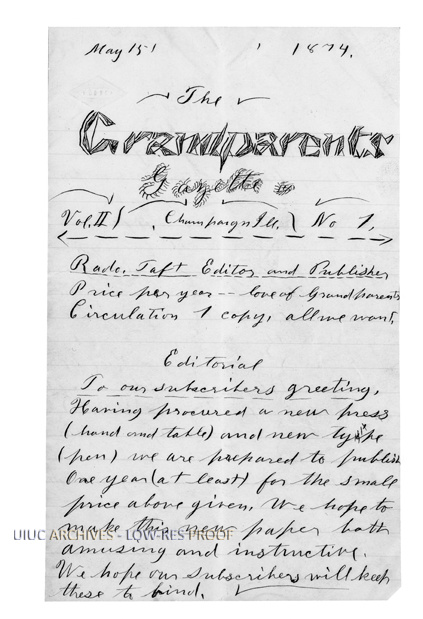 May 15 1874.
The
Grandparents
Gazette
Vol. II Champaign Ill. No 1,
Rado. Taft Editor and Publisher
Price per year -- love of Grandparents
Circulation 1 copy, all we want.
Editorial
To our subscribers greeting,
Having procured a new press
(hand and table) and new type
(pen) we are prepared to publish
One year (at least) for the small
price above given. We hope to
make this news paper both
UIUC ARCHIVES - LOW-RES PROOF
amusing and instructive.
We hope our subscribers will keep
these to bind.